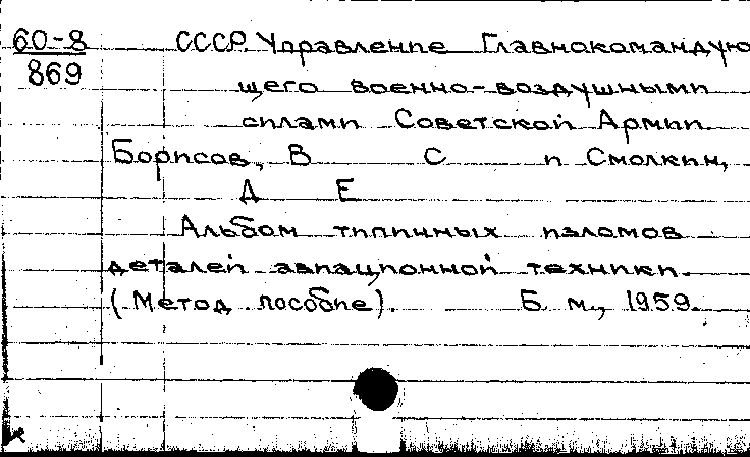 60-8 СССР. Управление Главнокомандую
869 щего военно-воздушными
силами Советской Армии.
Борисов, В С и Смолкин,
Д Е
Альбом типичных изломов
деталей авиационной техники.
(Метод. пособие). Б. м., 1959.